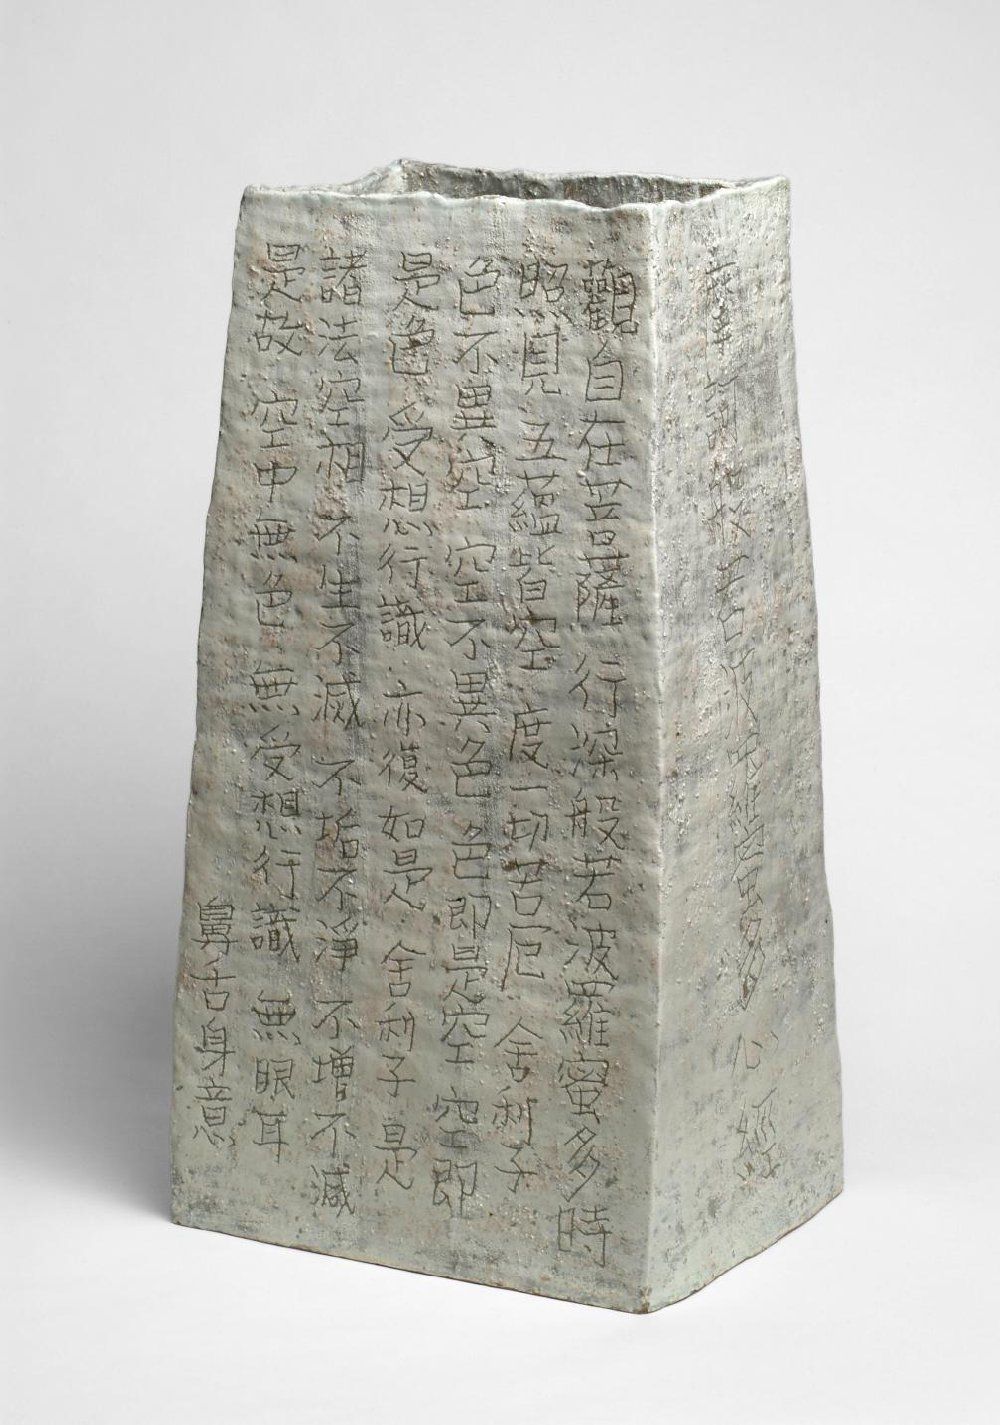 摩訶般若波羅蜜多心經
觀自在菩薩行深般若波羅蜜多時
照見五蘊皆空度一切苦厄舍利子
色不異空空不異色色即是空空即
是色受想行識亦復如是舍利子是
諸法空相不生不滅不垢不淨不增不減
是故空中無色無受想行識無眼耳
鼻舌身意